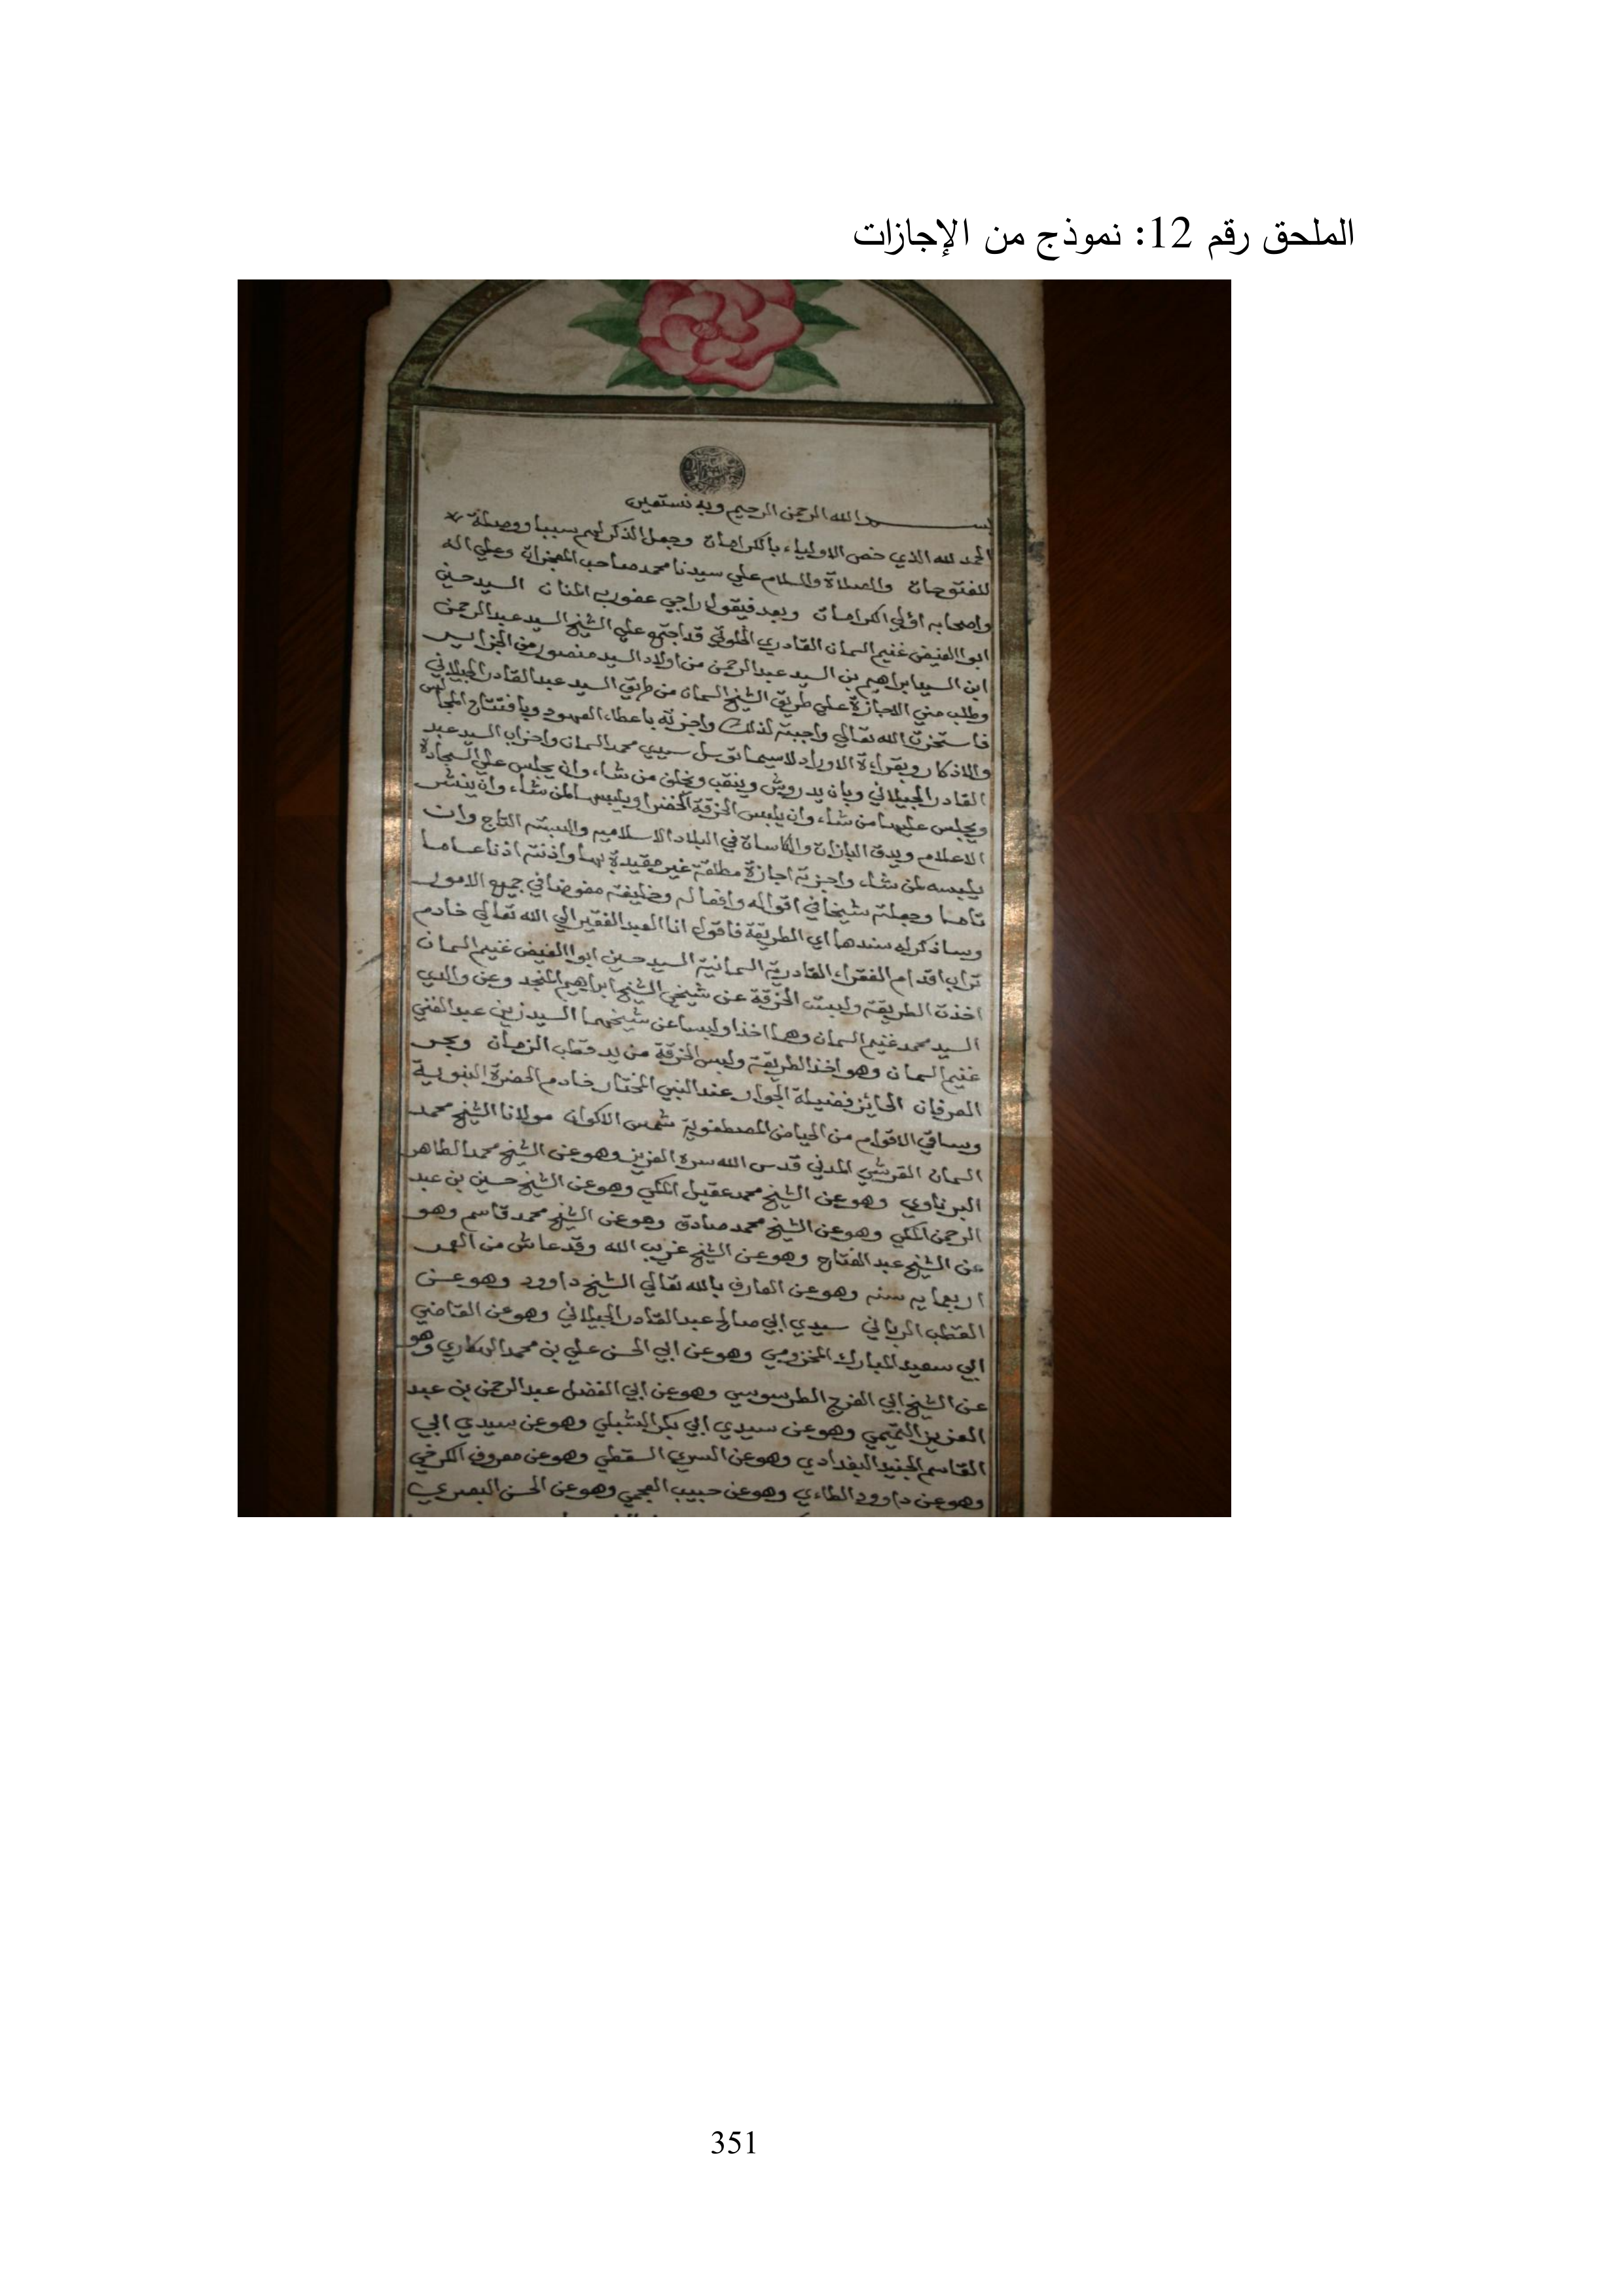 الملحق رقم 12: نموذج من الإجازات
بسم الله الرحمن الرحيم وبه نستعين
الحمد لله الذي خص الاولياء بالكرامات وجعل الذكر لهم سببا ووصلة
للفتوحات والصلاة والسلام علي سيدنا محمد صاحب المعجزات وعلي اله
واصحابه اولي الكرامات وبعد فيقول راجي عفو رب المنان السيد حسين
ابوا الفيض غنيم السمان القادري الخلوتي قد اجتمع علي الشيخ السيد عبد الرحمن
ابن السيد ابراهيم بن السيد عبد الرحمن من اولاد السيد منصور من الجزاير
وطلب مني الاجازة علي طريق الشيخ السمان من طريق السيد عبد القادر الجيلاني
فاستخرت الله تعالي واجبته لذلك واجزته باعطاء العهود وبافتتاح المجالس
والاذكار وبقراءة الاوراد لاسيما توسل سيدي محمد السمان واحزاب السيد عبد
القادر الجيلاني وبان يدروش وينقب ويخلف من شاء وان يجلس علي السجادة
ويجلس عليها من شاء وان يلبس الخرقة الخضرا ويلبسها لمن شاء وان ينشر
الاعلام ويدق البازات والكاسات في البلاد الاسلاميه والبسته التاج وان
يلبسه لمن شاء واجزته اجازة مطلقة غير مقيدة بها واذنته اذنا عاما
تاما وجعلته شيخا في اقواله وافعاله وخليفته مفوضا في جميع الامور
وساذكر له سندها اي الطريقة فاقول انا العبد الفقير الي الله تعالي خادم
تراب اقدام الفقراء القادرية السمانية السيد حسين ابوا الفيض غنيم السمان
اخذت الطريقة ولبست الخرقة عن شيخي الشيخ ابراهيم المنجد وعن والدي
السيد محمد غنيم السمان وهما اخذا ولبسا عن شيخهما السيد زيني عبد الغني
غنيم السمان وهو اخذ الطريقة ولبس الخرقة من يد قطب الزمان وبحر
العرفان الحائز فضيلة الجوار عند النبي المختار خادم الحضرة النبوية
وساقي الاقوام من الحياض المصطفوية شمس الاكوان مولانا الشيخ محمد
السمان القرشي المدني قدس الله سره العزيز وهو عن الشيخ محمد الطاهر
البرناوي وهو عن الشيخ محمد عقيل المكي وهو عن الشيخ حسين بن عبد
الرحمن المكي وهو عن الشيخ محمد صادق وهو عن الشيخ محمد قاسم وهو
عن الشيخ عبد الفتاح وهو عن الشيخ غريب الله وقد عاش من العمر
اربعمايه سنه وهو عن العارف بالله تعالي الشيخ داوود وهو عن
القطب الرباني سيدي ابي صالح عبد القادر الجيلاني وهو عن القاضي
ابي سعيد المبارك المخزومي وهو عن ابي الحسن علي بن محمد الهكاري وهو
عن الشيخ ابي الفرج الطرسوسي وهو عن ابي الفضل عبد الرحمن بن عبد
العزيز التميمي وهو عن سيدي ابي بكر الشبلي وهو عن سيدي ابي
القاسم الجنيد البغدادي وهو عن السري السقطي وهو عن معروف الكرخي
وهو عن داوود الطاءي وهو عن حبيب العجمي وهو عن الحسن البصري
351